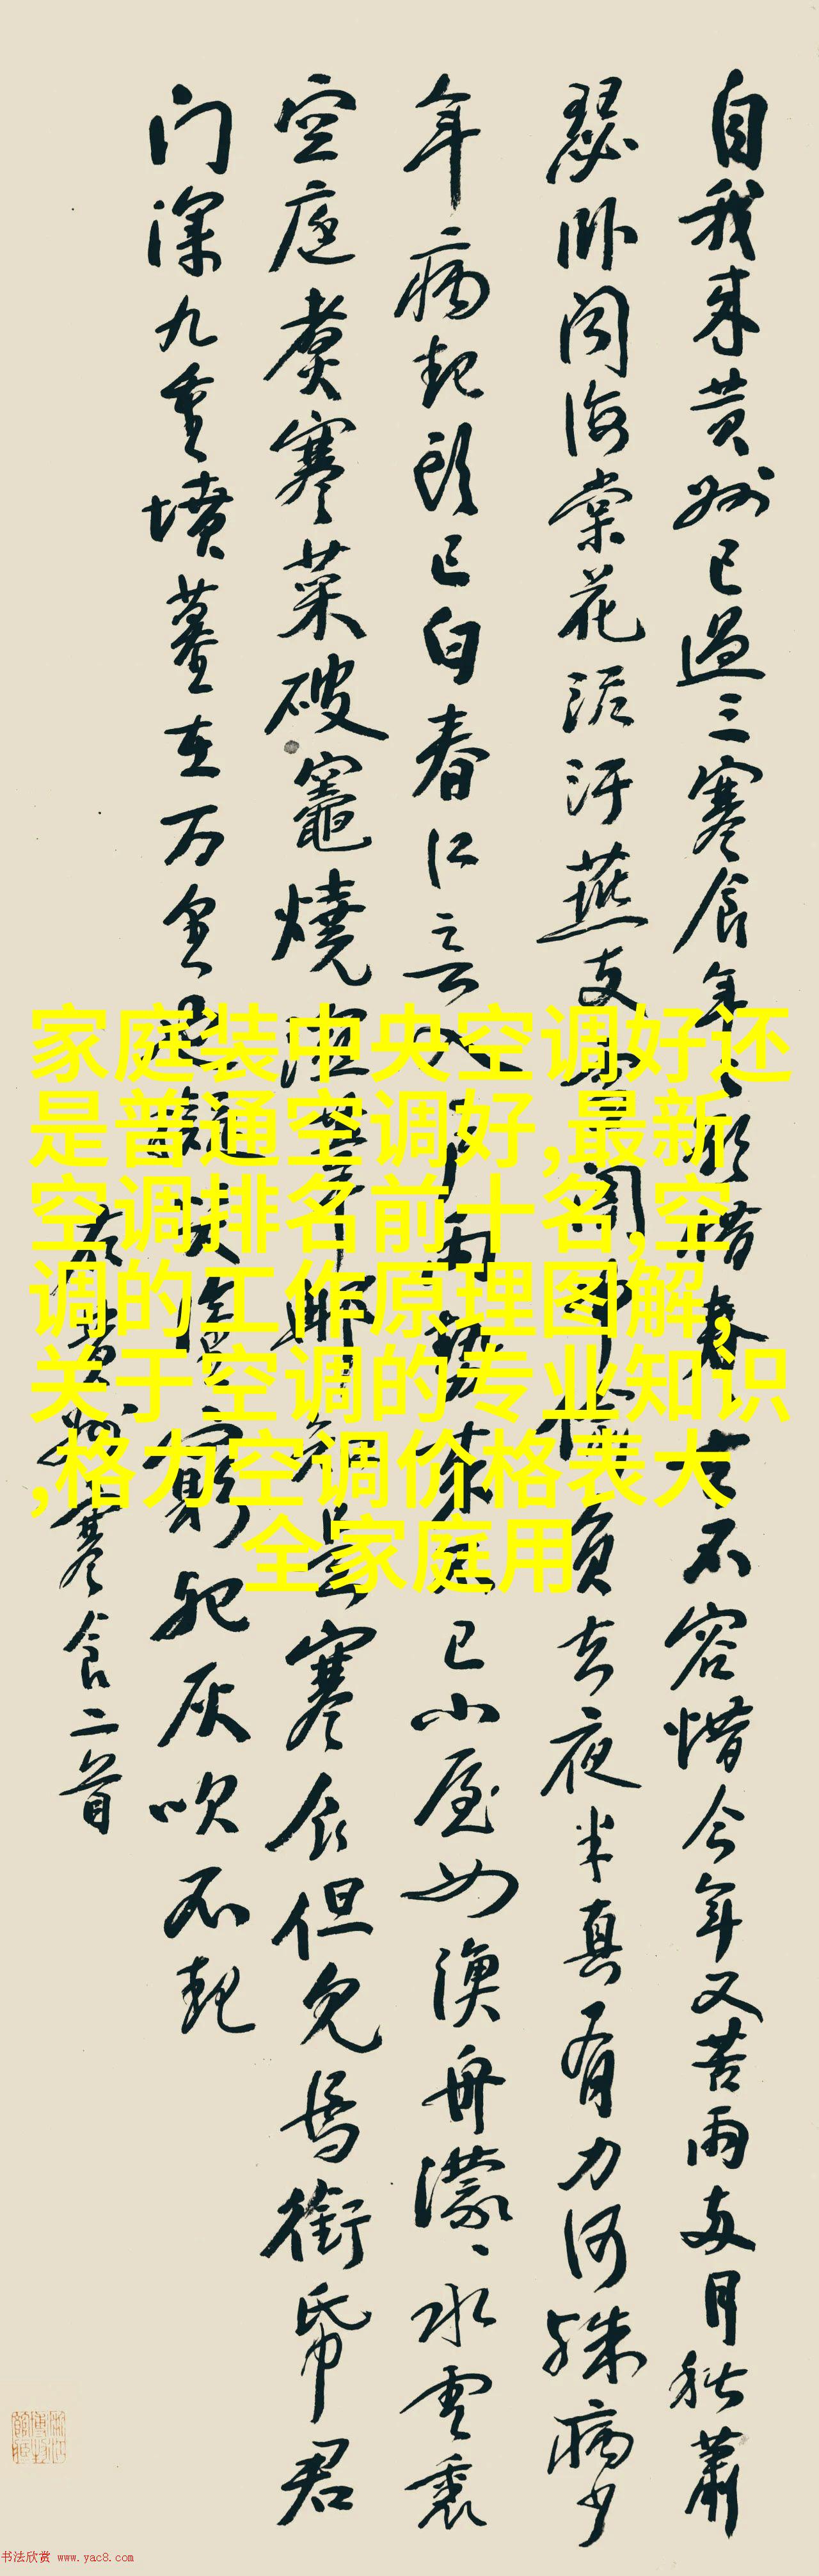 自我来黄州已過三寒食年年欲惜春去不容惜今年又苦雨两月秋蕭
瑟卧闻海棠花泥汙燕支雪闇中偷負去夜半真有力何殊病少
年病起头已白春江入户雨势来不已小屋如漁舟濛濛水雲裏
空庖煮寒菜破竈燒湿苇那知是寒食但見烏銜帋君
门深九重墳墓在万里也擬哭途窮死灰吹不起
右黄州寒食二首
家庭装中央空调好还
是普通空调好,最新
空调排名前十名,空
调的工作原理图解,
关于空调的专业知识
,格力空调价格表大
全家庭用
书法欣赏 www.yac8.com